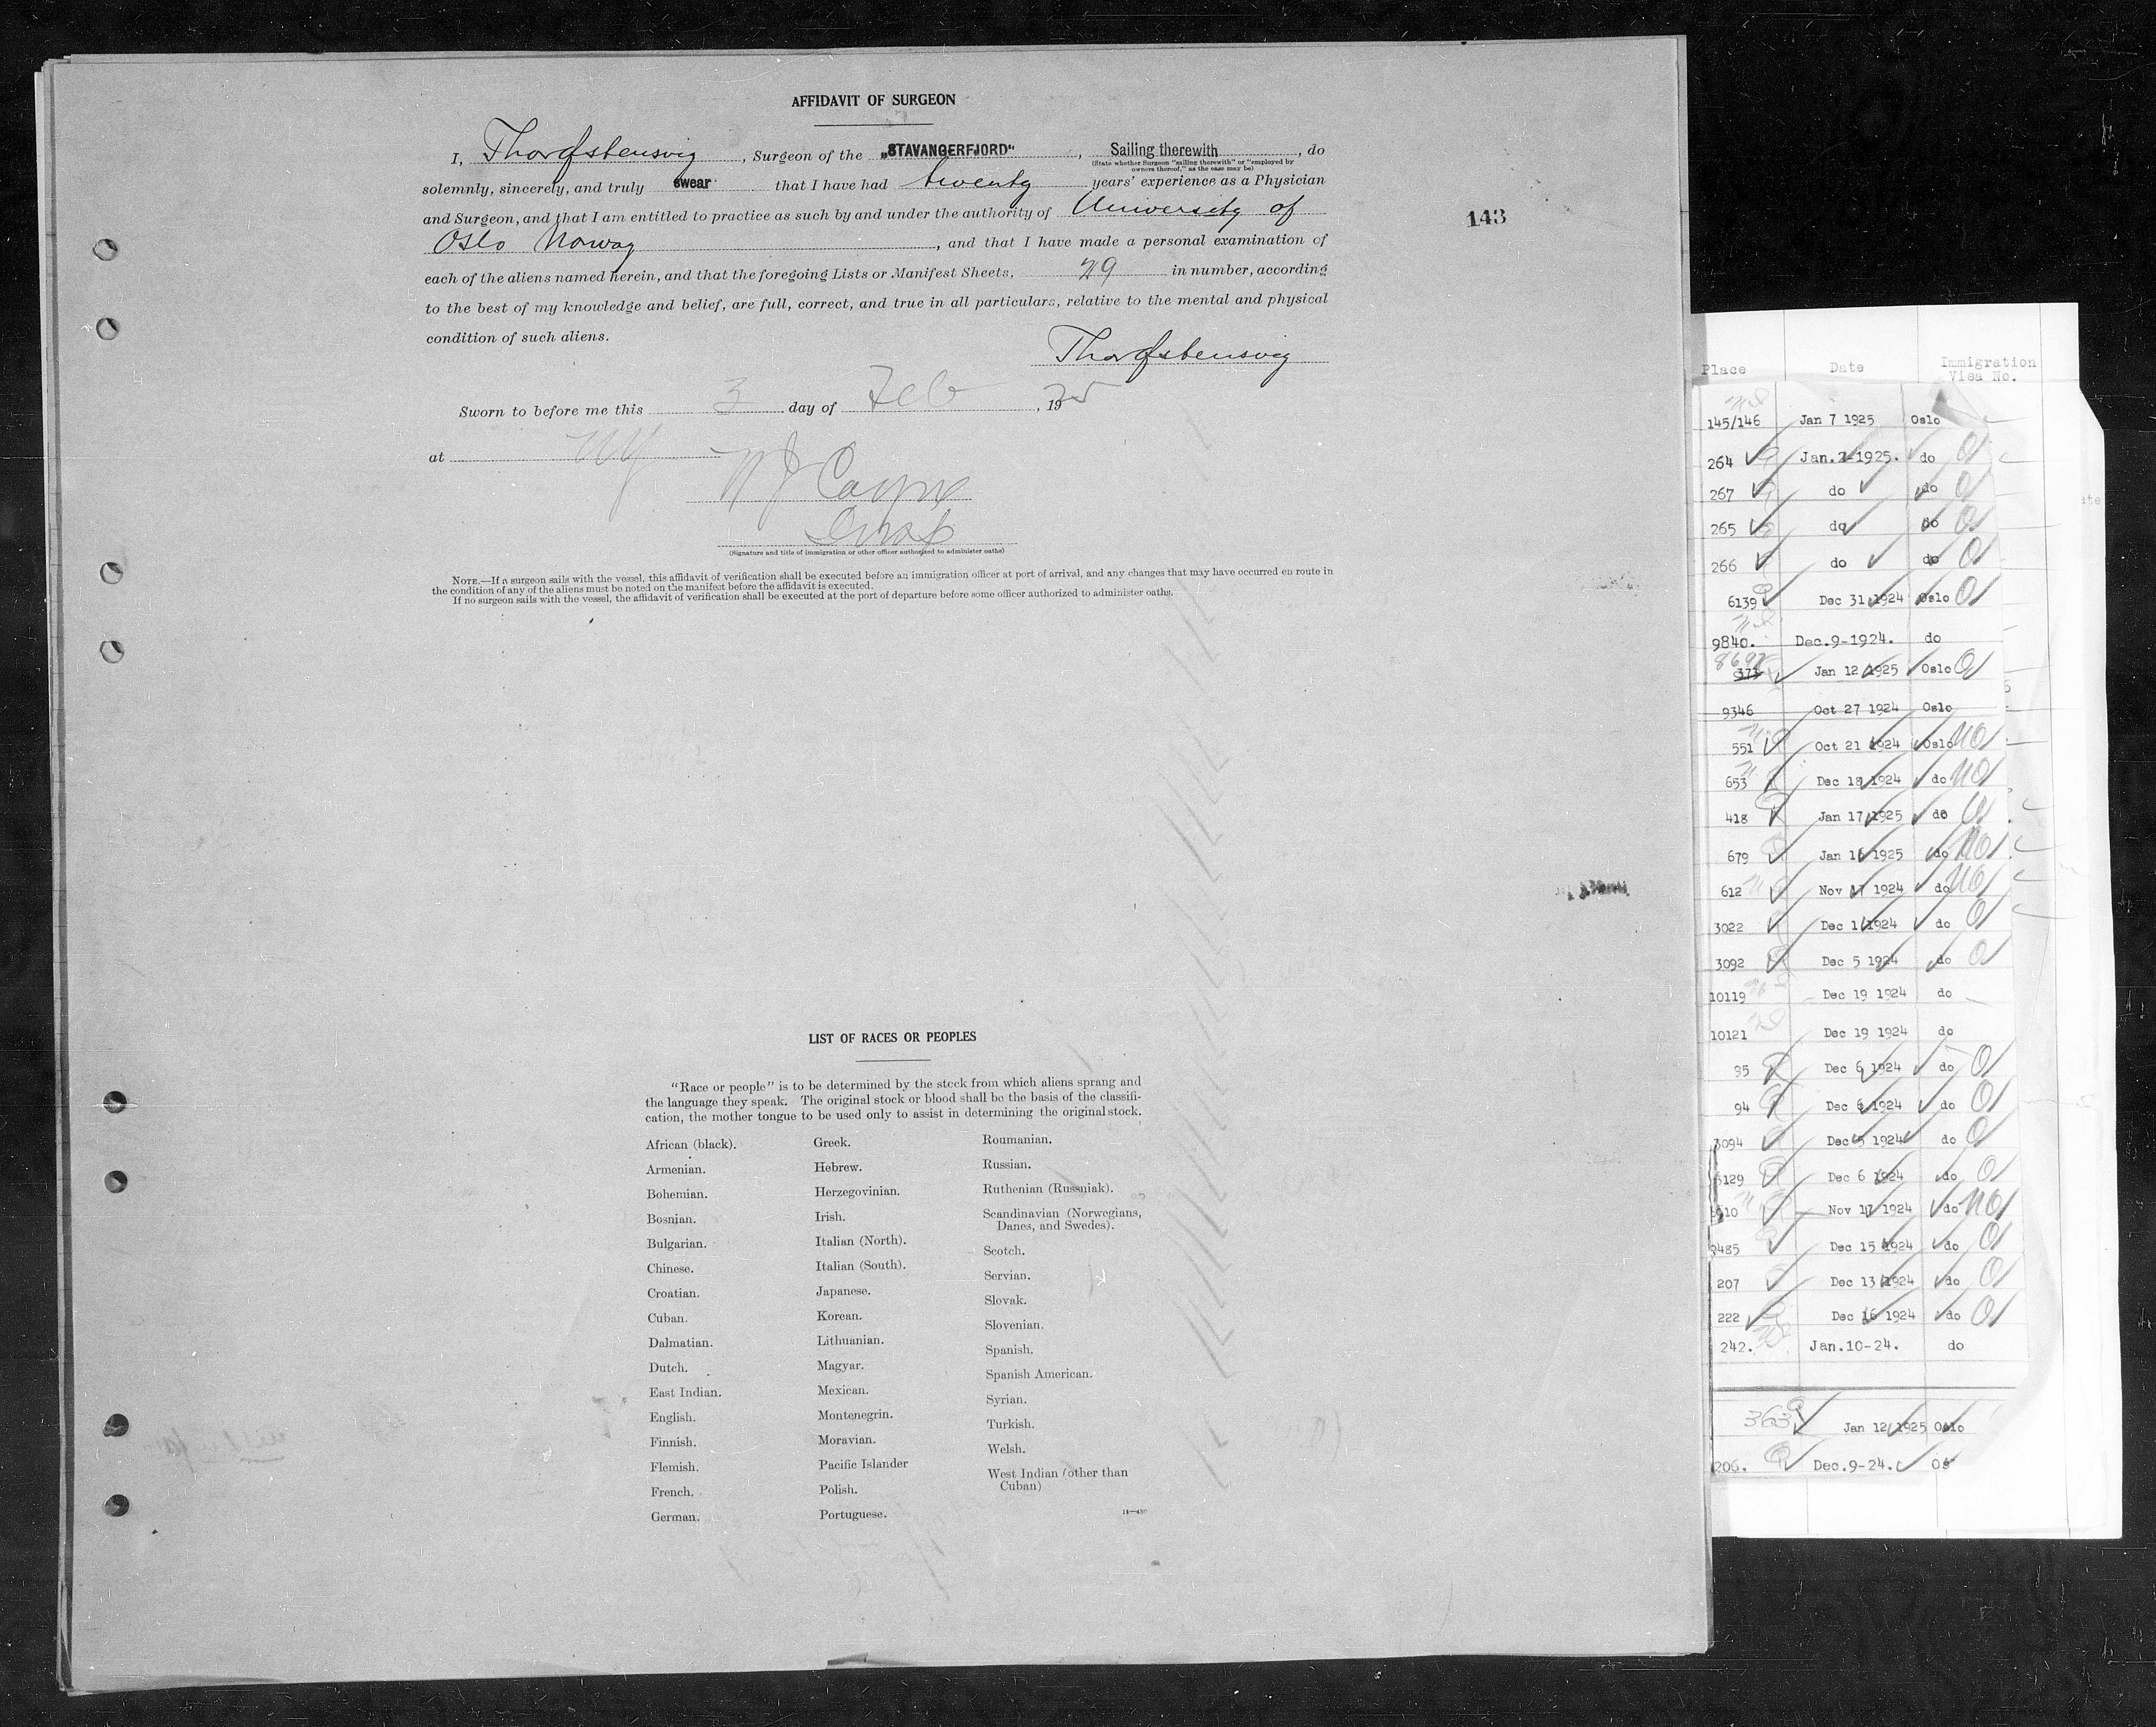 AFFIDAVIT OF SURGEON
I, Thorfstensvig, Surgeon of the „STAVANGERFJORD“, Sailing therewith, do
(State whether Surgeon "sailing therewith" or "employed by
owners thereof," as the case may be)
solemnly, sincerely, and truly swear that I have had twenty years' experience as a Physician
and Surgeon, and that I am entitled to practice as such by and under the authority of University of
Oslo Norway, and that I have made a personal examination of
143
each of the aliens named herein, and that the foregoing Lists or Manifest Sheets, 29 in number, according
to the best of my knowledge and belief, are full, correct, and true in all particulars, relative to the mental and physical
condition of such aliens.
Thorfstensvig
Sworn to before me this 3 day of Feb, 1925
at NY
(Signature and title of immigration or other officer authorized to administer oaths)
NOTE.—If a surgeon sails with the vessel, this affidavit of verification shall be executed before an immigration officer at port of arrival, and any changes that may have occurred en route in
the condition of any of the aliens must be noted on the manifest before the affidavit is executed.
If no surgeon sails with the vessel, the affidavit of verification shall be executed at the port of departure before some officer authorized to administer oaths.
LIST OF RACES OR PEOPLES
"Race or people" is to be determined by the stock from which aliens sprang and
the language they speak. The original stock or blood shall be the basis of the classifi-
cation, the mother tongue to be used only to assist in determining the original stock.
African (black).
Armenian.
Bohemian.
Bosnian.
Bulgarian.
Chinese.
Croatian.
Cuban.
Dalmatian.
Dutch.
East Indian.
English.
Finnish.
Flemish.
French.
German.
Greek.
Hebrew.
Herzegovinian.
Irish.
Italian (North).
Italian (South).
Japanese.
Korean.
Lithuanian.
Magyar.
Mexican.
Montenegrin.
Moravian.
Pacific Islander
Polish.
Portuguese.
Roumanian.
Russian.
Ruthenian (Russniak).
Scandinavian (Norwegians,
Danes, and Swedes).
Scotch.
Servian.
Slovak.
Slovenian.
Spanish.
Spanish American.
Syrian.
Turkish.
Welsh.
West Indian (other than
Cuban)
14—430
Place Date Immigration
Visa No.
145/146 Jan 7 1925 Oslo
264 Jan.7-1925. do
267 do do
265 do do
266 do do
6139 Dec 31 1924 Oslo
9840. Dec.9-1924. do
373 Jan 12 1925 Oslo
9346 Oct 27 1924 Oslo
551 Oct 21 1924 Oslo NQ
653 Dec 18 1924 do NQ
418 Jan 17 1925 do
679 Jan 16 1925 do NQ
612 Nov 17 1924 do NQ
3022 Dec 1 1924 do
3092 Dec 5 1924 do
10119 Dec 19 1924 do
10121 Dec 19 1924 do
95 Dec 6 1924 do
94 Dec 6 1924 do
3094 Dec 5 1924 do
6129 Dec 6 1924 do
910 Nov 17 1924 do NQ
3485 Dec 15 1924 do
207 Dec 13 1924 do
222 Dec 16 1924 do
242. Jan.10-24. do
363 Jan 12 1925 Oslo
206. Dec.9-24. Os